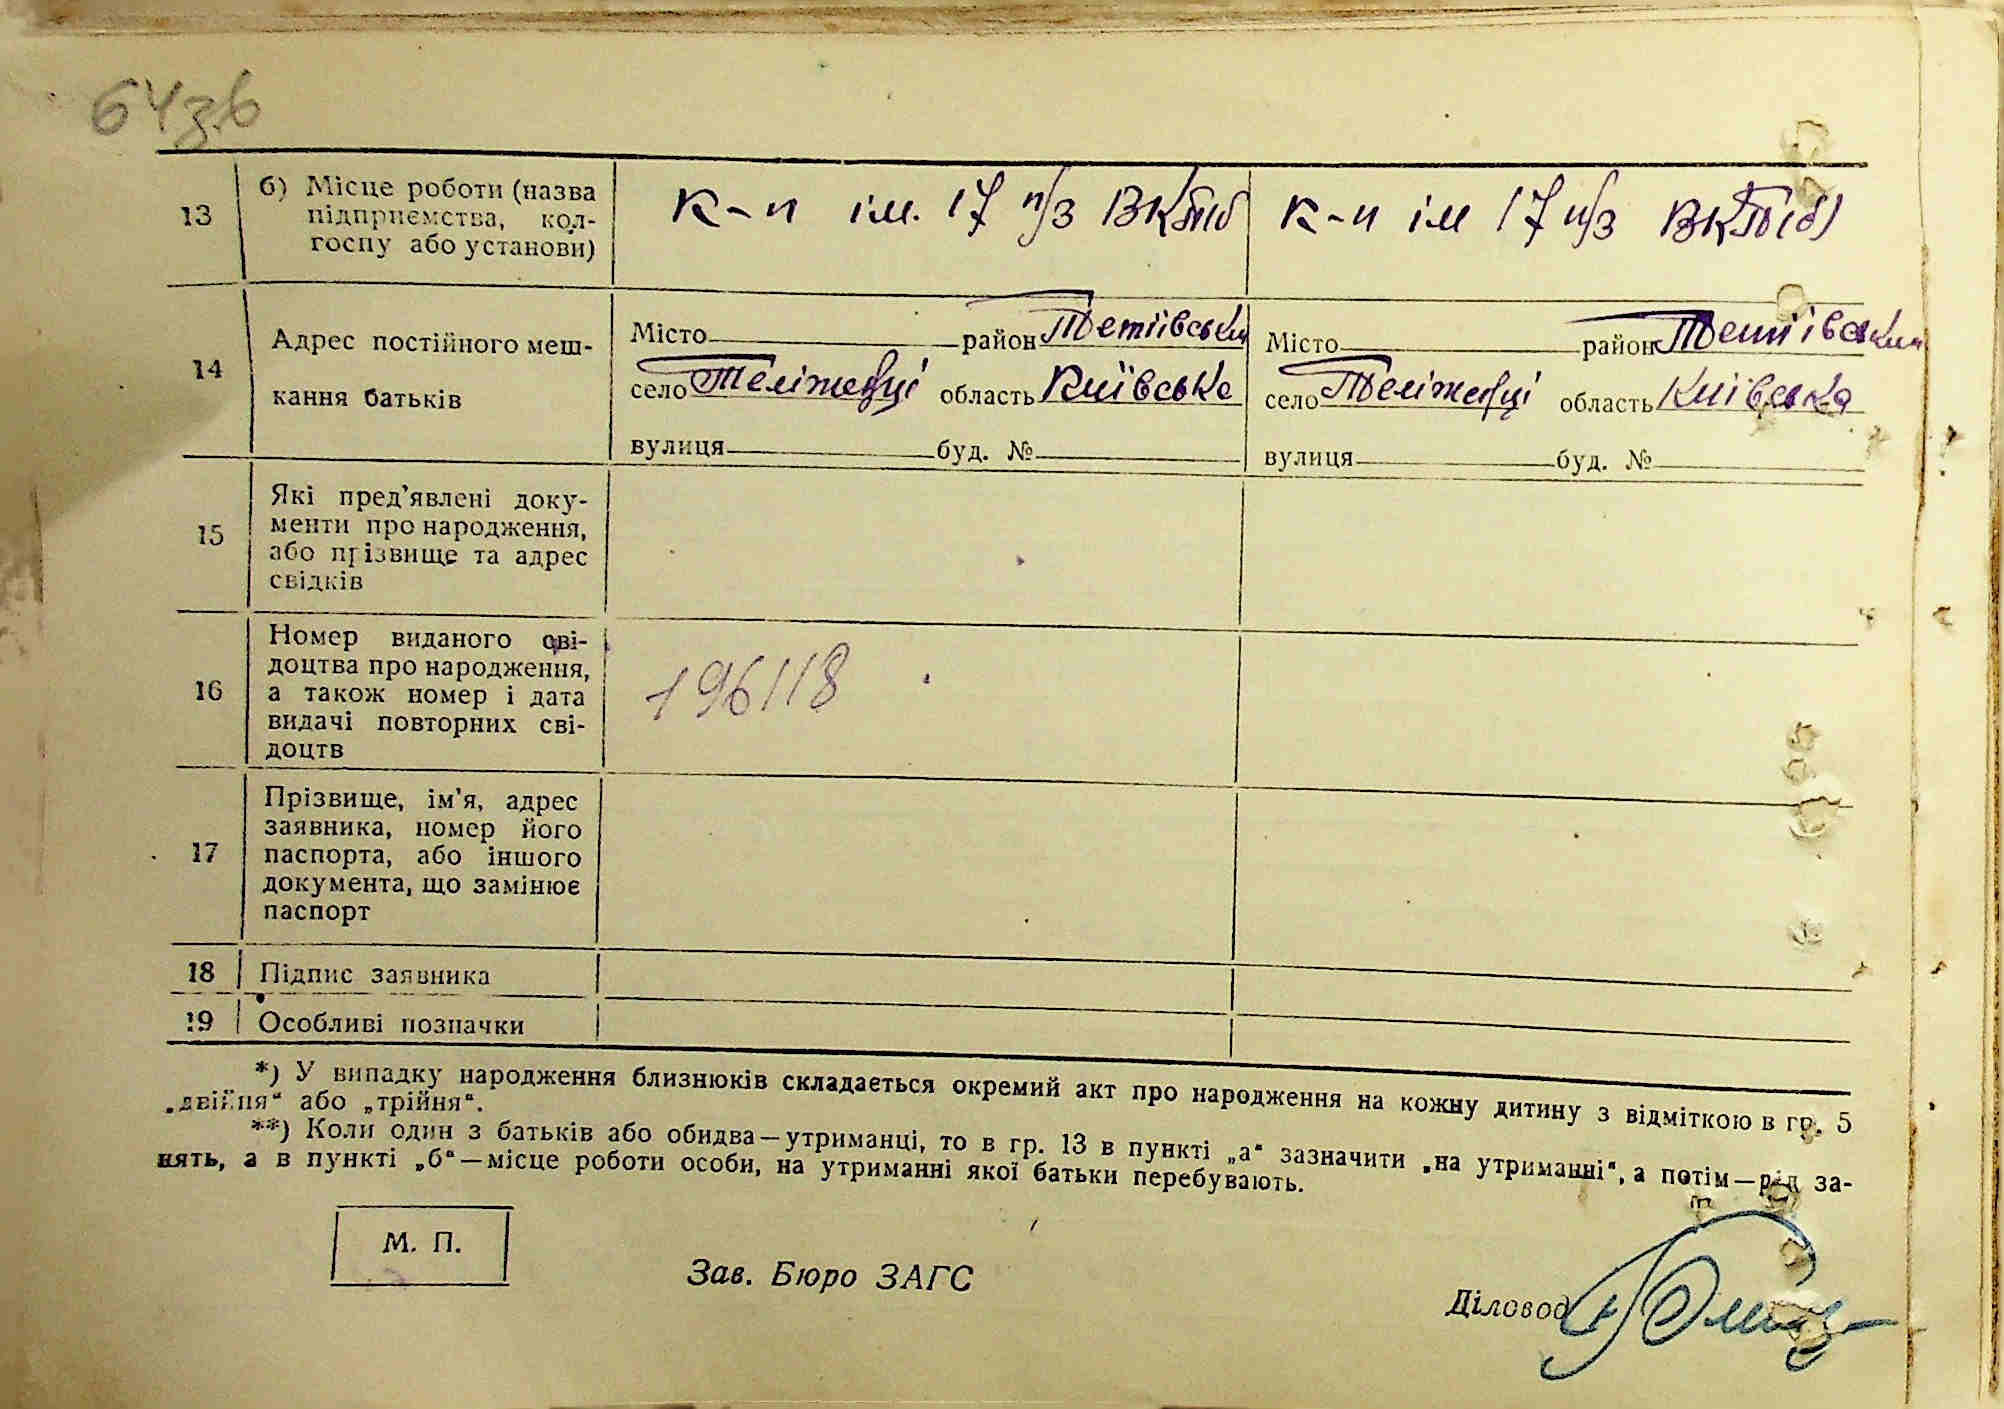 64зв
13 б) Місце роботи (назва
підприємства, кол-
госпу або установи)
к-п ім. 17 п/з ВКП(б) к-п ім 17 п/з ВКП(б)
14 Адрес постійного меш-
кання батьків
Місто район Тетіївський
село Теліжинці область Київська
вулиця буд. №
Місто район Тетіївський
село Теліжинці область Київська
вулиця буд. №
15 Які пред’явлені доку-
менти про народження,
або прізвище та адрес
свідків
16 Номер виданого сві-
доцтва про народження,
а також номер і дата
видачі повторних сві-
доцтв
196118
17 Прізвище, ім’я, адрес
заявника, номер його
паспорта, або іншого
документа, що замінює
паспорт
18 Підпис заявника
19 Особливі позначки
*) У випадку народження близнюків складається окремий акт про народження на кожну дитину з відміткою в гр. 5
„двійня“ або „трійня“.
**) Коли один з батьків або обидва—утриманці, то в гр. 13 в пункті „а“ зазначити „на утриманні“, а потім—рід за-
нять, а в пункті „б“—місце роботи особи, на утриманні якої батьки перебувають.
М. П.
Зав. Бюро ЗАГС
Діловод